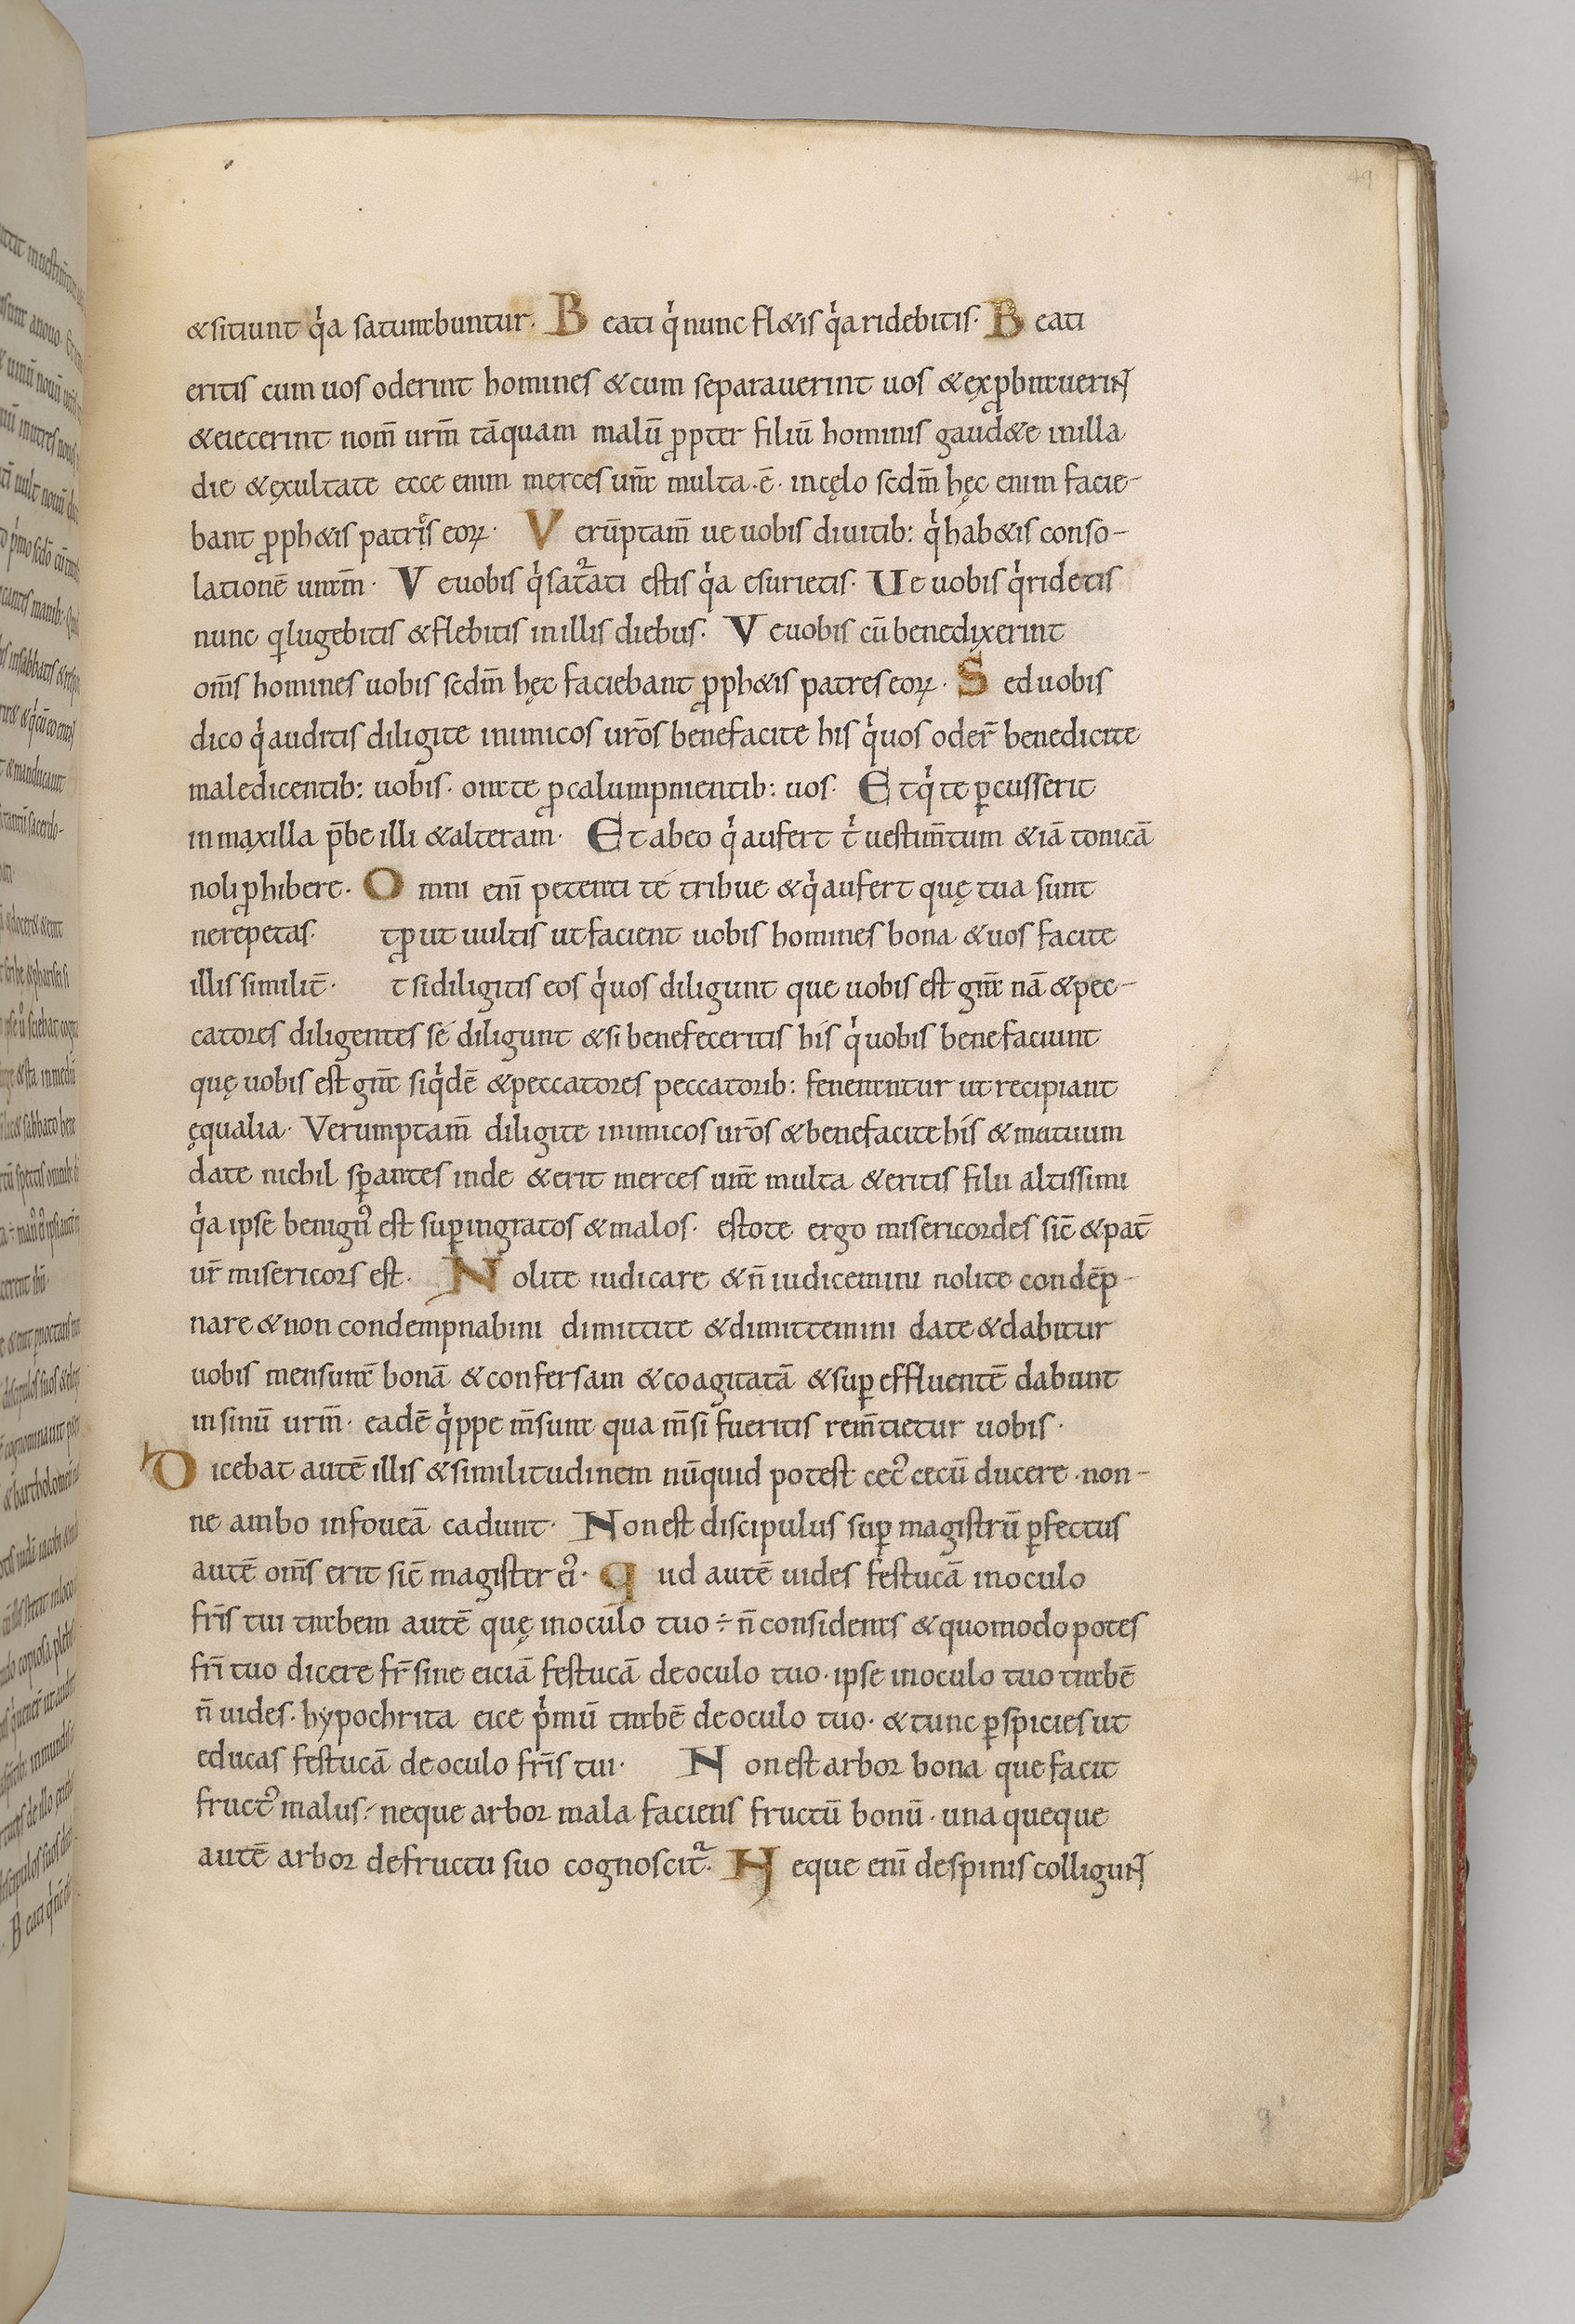 &sitiunt qͥa saturabuntur. Beati qͥ nunc fl&is qͥa ridebitis. Beati
eritis cum uos oderint homines & cum separauerint uos & exꝓbrauerint
& eiecerint nom̄ urm̄ tāquam malū ꝓpter filiū hominis gaud&e in illa
die & exultate ecce enim merces urā multa .ē. in cęlo scdm̄ hęc enim facie-
bant ꝓph&is patris eoꝝ. Verūptam̄ ue uobis diuitib: qͥ hab&is conso-
lationē uram̄. Ve uobis qͥ satᷣati estis qͥa esurietis. Ue uobis qͥ ridetis
nunc q lugebitis & flebitis in illis diebus. Ve uobis cū benedixerint
om̄s homines uobis scdm̄ hęc faciebant ꝓph&is patres eoꝝ. Sed uobis
dico qͥ auditis diligite inimicos urōs benefacite his qͥ uos oder̄ benedicite
maledicentib: uobis. orate ꝓ calumpnientib: uos. Et qͥ te ꝑcusserit
in maxilla p̄be illi & alteram. Et ab eo qͥ aufert tͥ uestim̄tum & iā tonicā
noli ꝓhibere. Omni enī petenti te tribue & qͥ aufert quę tua sunt
ne repetas. t ꝓut uultis ut facient uobis homines bona & uos facite
illis similit̄. t si diligitis eos qͥ uos diligunt que uobis est grā nā & pec-
catores diligentes se diligunt & si benefeceritis his qͥ uobis benefaciunt
quę uobis est grā siqͥdē & peccatores peccatorib: fenerantur ut recipiant
ęqualia. Verumptam̄ diligite inimicos urōs & benefacite his & mutuum
date nichil sꝑantes inde & erit merces urā multa & eritis filii altissimi
qͥa ipse benignꝰ est suꝑ ingratos & malos. estote ergo misericordes sic̄ & pat̄
ur̄ misericors est. Nolite iudicare & n̄ iudicemini nolite condēp-
nare & non condempnabini dimittite & dimittemini date & dabitur
uobis mensurā bonā & confersam & coagitatā & suꝑeffluentē dabunt
in sinū urm̄. eadē qͥppe m̄sura qua m̄si fueritis rem̄tietur uobis.
Dicebat autē illis & similitudinem nūquid potest cecꝰ cecū ducere. non-
ne ambo in foueā cadunt. Non est discipulus suꝑ magistrū ꝑfectus
autē om̄s erit sic̄ magister eiꝰ. qud autē uides festucā in oculo
fr̄is tui trabem autē quę in oculo tuo ÷ n̄ consideras & quomodo potes
fr̄i tuo dicere fr̄ sine eiciā festucā de oculo tuo. ipse in oculo tuo trabē
n̄ uides. hypochrita eice pͥmū trabē de oculo tuo. & tunc ꝑspicies ut
educas festucā de oculo fr̄is tui. Non est arbor bona que facit
fructꝰ malus. neque arbor mala faciens fructū bonū. una queque
autē arbor de fructu suo cognoscitᷣ. Neque enī de spinis colligunt